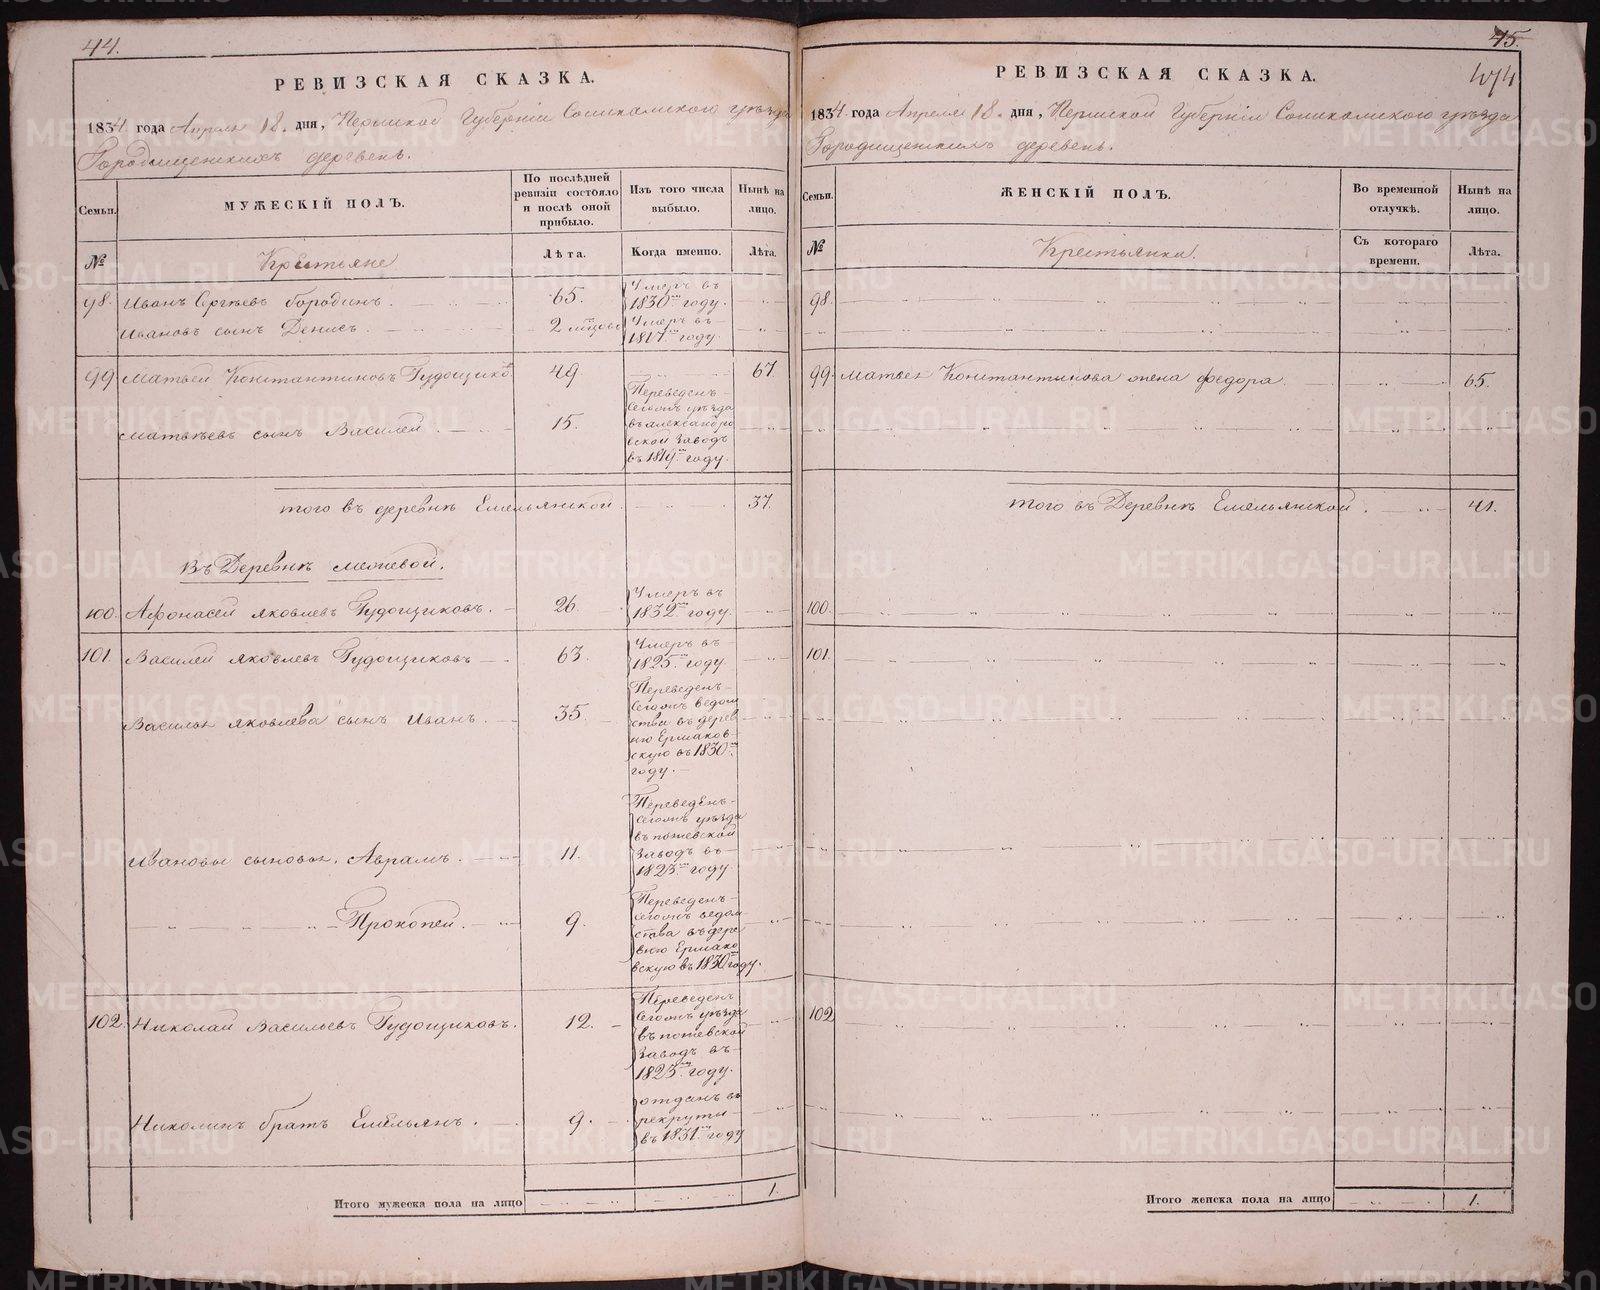 44.
РЕВИЗСКАЯ СКАЗКА.
1834. года Апреля 18. дня, Пермской Губерніи Соликамскаго уѣзда
Городищенскихъ деревень.
Семьи.
МУЖЕСКІЙ ПОЛЪ.
По послѣдней ревизіи состояло и послѣ оной прибыло.
Изъ того числа выбыло.
Нынѣ на лицо.
№
Крестьяне
Лѣта.
Когда именно.
Лѣта.
98. Иванъ Сергѣевъ бородинъ. 65. Умеръ въ 1830м году.
Ивановъ сынъ Денисъ. 2 мѣцовъ Умеръ въ 1817м году.
99 Матвей Константиновъ Гудощико 49 67
Матвѣевъ сынъ Василей 15. Переведенъ
сегожъ уѣзда
въ александро
вской заводъ
въ 1819м году.
того въ деревнѣ Емельянской. 37.
Въ Деревнѣ межевой.
100. Афонасей яковлевъ Гудощиковъ. 26 Умеръ въ 1832м году.
101. Василей яковлевъ Гудощиковъ 63. Умеръ въ 1825м году.
Василья яковлева сынъ Иванъ. 35. Переведенъ
сегожъ ведом
ства въ дерев
ню Ермаков-
скую въ 1830м
году.
Ивановы сыновья. Аврамъ. 11. Переведенъ
сегожъ уѣзда
въ пожевской
Заводъ въ
1823м году.
Прокопей. 9. Переведенъ
сегожъ ведом
ства въ дере
вню Ермако
вскую въ 1830м году.
102. Николай Васильевъ Гудощиковъ. 12. Переведенъ
сегожъ уѣзда
въ пожевской
Заводъ въ
1823м году.
Николинъ братъ Емельянъ. 9. отданъ въ
рекруты
въ 1831м году
Итого мужеска пола на лицо 1.
45.
474
РЕВИЗСКАЯ СКАЗКА.
1834. года Апреля 18. дня, Пермской Губерніи Соликамскаго уѣзда
Городищенскихъ деревень.
Семьи.
ЖЕНСКІЙ ПОЛЪ.
Во временной отлучкѣ.
Нынѣ на лицо.
№
Крестьянки.
Съ котораго времени.
Лѣта.
98.
99. Матвея Константинова жена федора. 65.
того въ Деревнѣ Емельянской. 41.
100.
101.
102
Итого женска пола на лицо 1.
METRIKI.GASO-URAL.RU